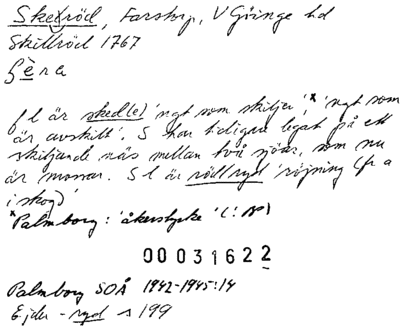 Skexröd, Farstorp, V Göinge hd
Skillröd 1767
fl är sked(e) 'ngt som skiljer', x 'ngt som
är avskilt'. S har tidigare legat på ett
skiljande näs mellan två sjöar, som nu
är mossar. Sl är rödl ryd 'röjning (fr a
i skog)'
x Palmborg: 'åkerstycke' (!
00031622
Palmborg SOÅ 1942-1945:14
Ejder -ryd s 199